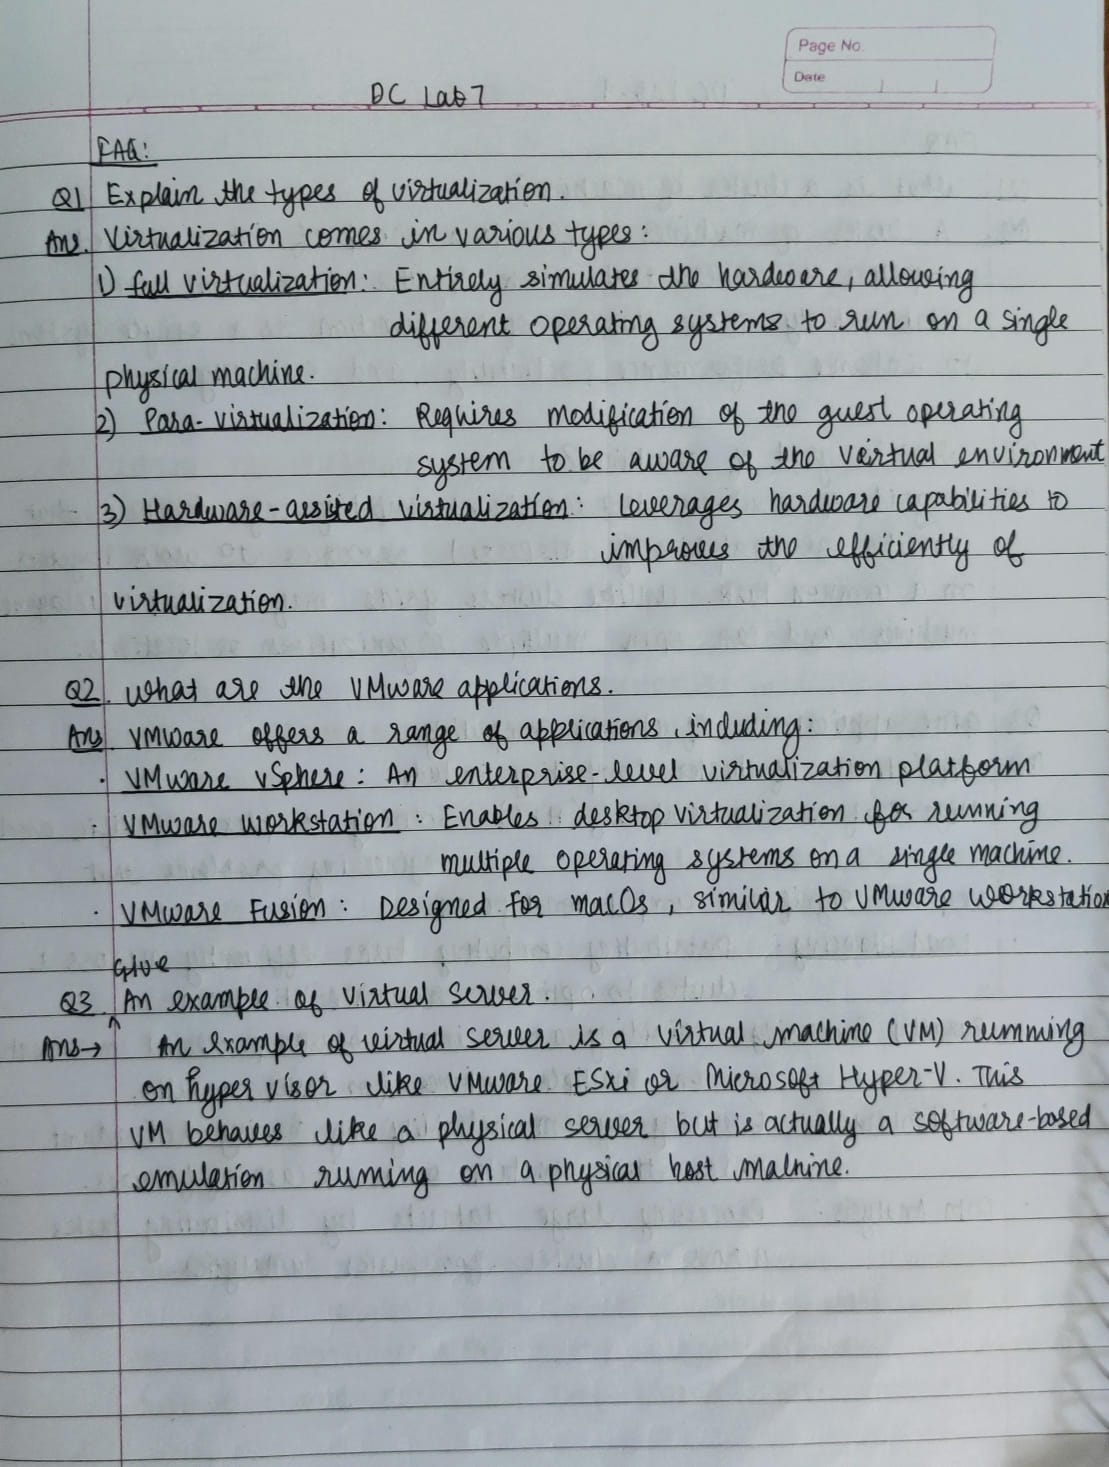 Page No.
Date
DC Lab 7
FAQ:
Q1 Explain the types of virtualization.
Ans. Virtualization comes in various types:
1) full virtualization: Entirely simulates the hardware, allowing
different operating systems to run on a single
physical machine.
2) Para-virtualization: Requires modification of the guest operating
system to be aware of the virtual environment
3) Hardware-assisted virtualization: Leverages hardware capabilities to
improves the efficiently of
virtualization.
Q2. What are the VMware applications.
Ans VMware offers a range of applications, including:
· VMware vSphere: An enterprise-level virtualization platform
· VMware workstation: Enables desktop virtualization for running
multiple operating systems on a single machine.
· VMware Fusion: Designed for macOs, similar to VMware workstation
Give
Q3. An example of virtual server.
Ans→ An example of virtual server is a virtual machine (VM) running
on hyper visor like VMware ESxi or Microsoft Hyper-V. This
VM behaves like a physical server but is actually a software-based
emulation runing on a physical host machine.